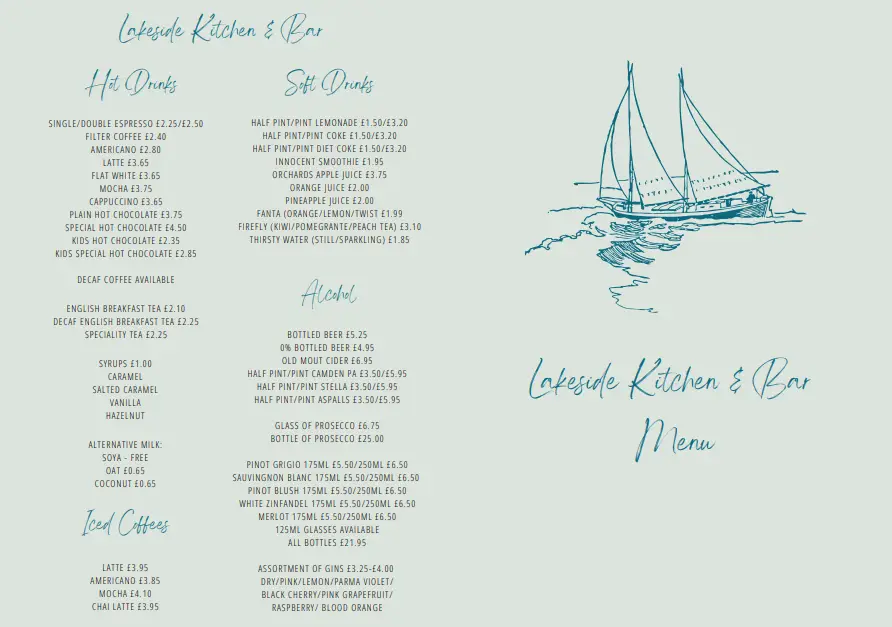 Lakeside Kitchen & Bar
Hot Drinks
SINGLE/DOUBLE ESPRESSO £2.25/£2.50
FILTER COFFEE £2.40
AMERICANO £2.80
LATTE £3.65
FLAT WHITE £3.65
MOCHA £3.75
CAPPUCCINO £3.65
PLAIN HOT CHOCOLATE £3.75
SPECIAL HOT CHOCOLATE £4.50
KIDS HOT CHOCOLATE £2.35
KIDS SPECIAL HOT CHOCOLATE £2.85
DECAF COFFEE AVAILABLE
ENGLISH BREAKFAST TEA £2.10
DECAF ENGLISH BREAKFAST TEA £2.25
SPECIALITY TEA £2.25
SYRUPS £1.00
CARAMEL
SALTED CARAMEL
VANILLA
HAZELNUT
ALTERNATIVE MILK:
SOYA - FREE
OAT £0.65
COCONUT £0.65
Iced Coffees
LATTE £3.95
AMERICANO £3.85
MOCHA £4.10
CHAI LATTE £3.95
Soft Drinks
HALF PINT/PINT LEMONADE £1.50/£3.20
HALF PINT/PINT COKE £1.50/£3.20
HALF PINT/PINT DIET COKE £1.50/£3.20
INNOCENT SMOOTHIE £1.95
ORCHARDS APPLE JUICE £3.75
ORANGE JUICE £2.00
PINEAPPLE JUICE £2.00
FANTA (ORANGE/LEMON/TWIST £1.99
FIREFLY (KIWI/POMEGRANTE/PEACH TEA) £3.10
THIRSTY WATER (STILL/SPARKLING) £1.85
Alcohol
BOTTLED BEER £5.25
0% BOTTLED BEER £4.95
OLD MOUT CIDER £6.95
HALF PINT/PINT CAMDEN PA £3.50/£5.95
HALF PINT/PINT STELLA £3.50/£5.95
HALF PINT/PINT ASPALLS £3.50/£5.95
GLASS OF PROSECCO £6.75
BOTTLE OF PROSECCO £25.00
PINOT GRIGIO 175ML £5.50/250ML £6.50
SAUVIGNON BLANC 175ML £5.50/250ML £6.50
PINOT BLUSH 175ML £5.50/250ML £6.50
WHITE ZINFANDEL 175ML £5.50/250ML £6.50
MERLOT 175ML £5.50/250ML £6.50
125ML GLASSES AVAILABLE
ALL BOTTLES £21.95
ASSORTMENT OF GINS £3.25-£4.00
DRY/PINK/LEMON/PARMA VIOLET/
BLACK CHERRY/PINK GRAPEFRUIT/
RASPBERRY/ BLOOD ORANGE
Lakeside Kitchen & Bar
Menu